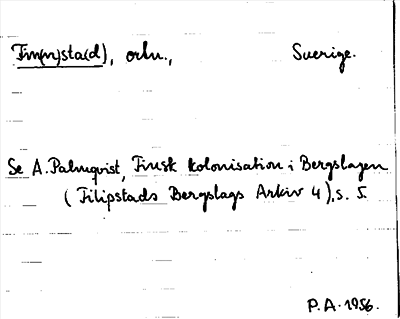 Fin(n)sta(d), ortn., Sverige.
Se A. Palmqvist, Finsk kolonisation i Bergslagen
(Filipstads Bergslags Arkiv 4), s. 5.
P.A. 1956.